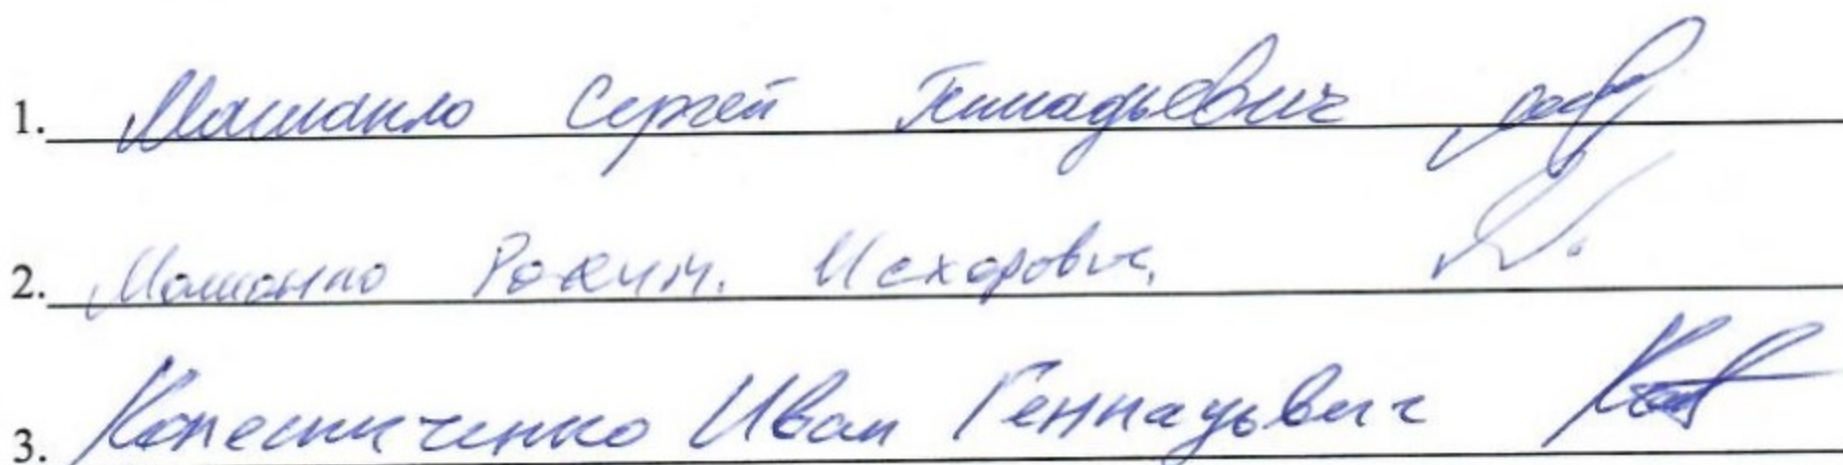 1. Машанло Сергей Геннадьевич
2. Машанло Рахим. Исхарович
3. Колесниченко Иван Геннадьевич